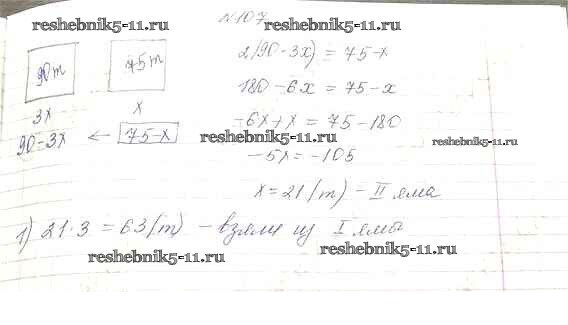 N107
reshebnik5-11.ru reshebnik5-11.ru
90т 75т 2(90-3x) = 75-x
180-6x = 75-x
3x x
-6x+x = 75-180
90-3x ← 75-x
reshebnik5-11.ru reshebnik5-11.ru
-5x = -105
x = 21 (т) - II яма
1) 21·3 = 63 (т) - взяли из I ямы
reshebnik5-11.ru reshebnik5-11.ru